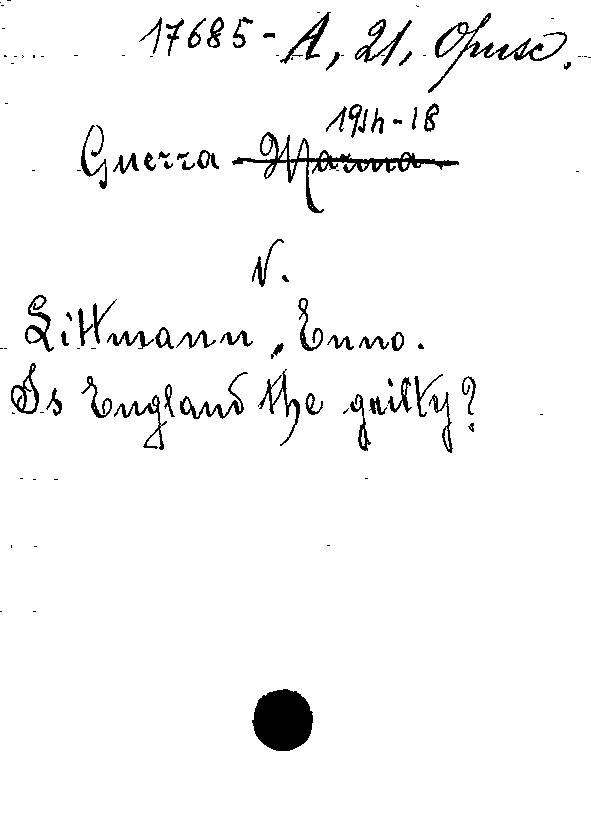 17685-A, 21, Opusc.
1914-18
Guerra Marina
V.
Littmann, Enno.
Is England the guilty?